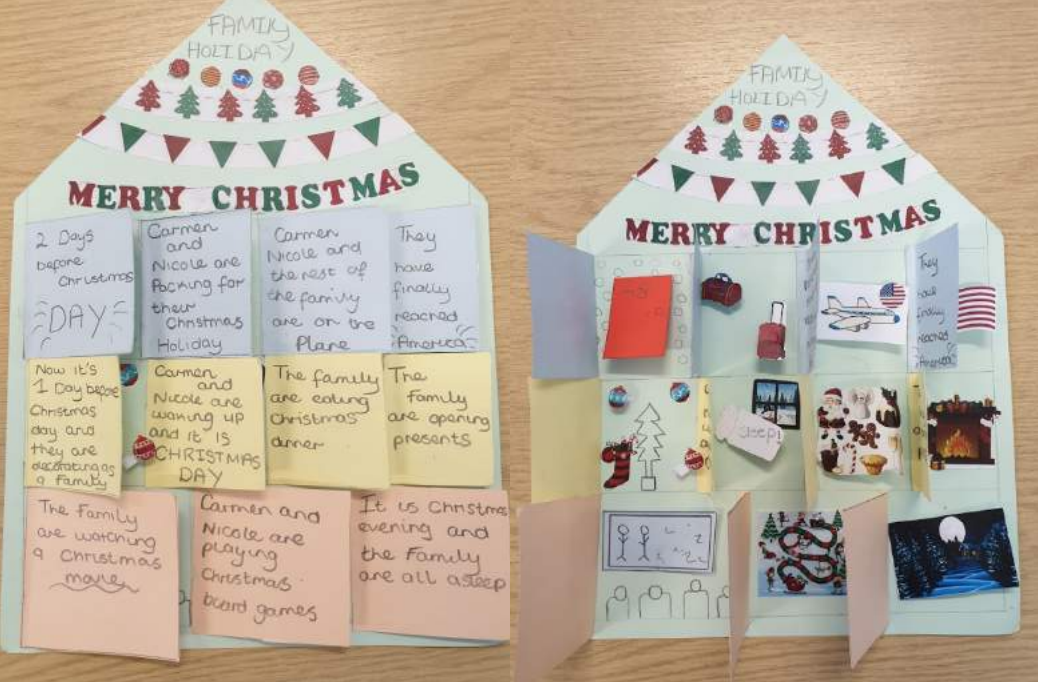 FAMILY
HOLIDAY
MERRY CHRISTMAS
2 Days
before
Christmas
DAY
Carmen
and
Nicole are
Packing for
their
Christmas
Holiday
Carmen
Nicole and
the rest of
the family
are on the
Plane
They
have
finally
reached
America
Now it's
1 Day before
Christmas
day and
they are
decorating as
a Family
Carmen
and
Nicole are
waking up
and it is
CHRISTMAS
DAY
The family
are eating
Christmas
dinner
The
Family
are opening
presents
The Family
are watching
a Christmas
movie
Carmen and
Nicole are
playing
Christmas
board games
It is Christmas
evening and
the Family
are all asleep
FAMILY
HOLIDAY
MERRY CHRISTMAS
They
have
finally
reached
America
sleep!